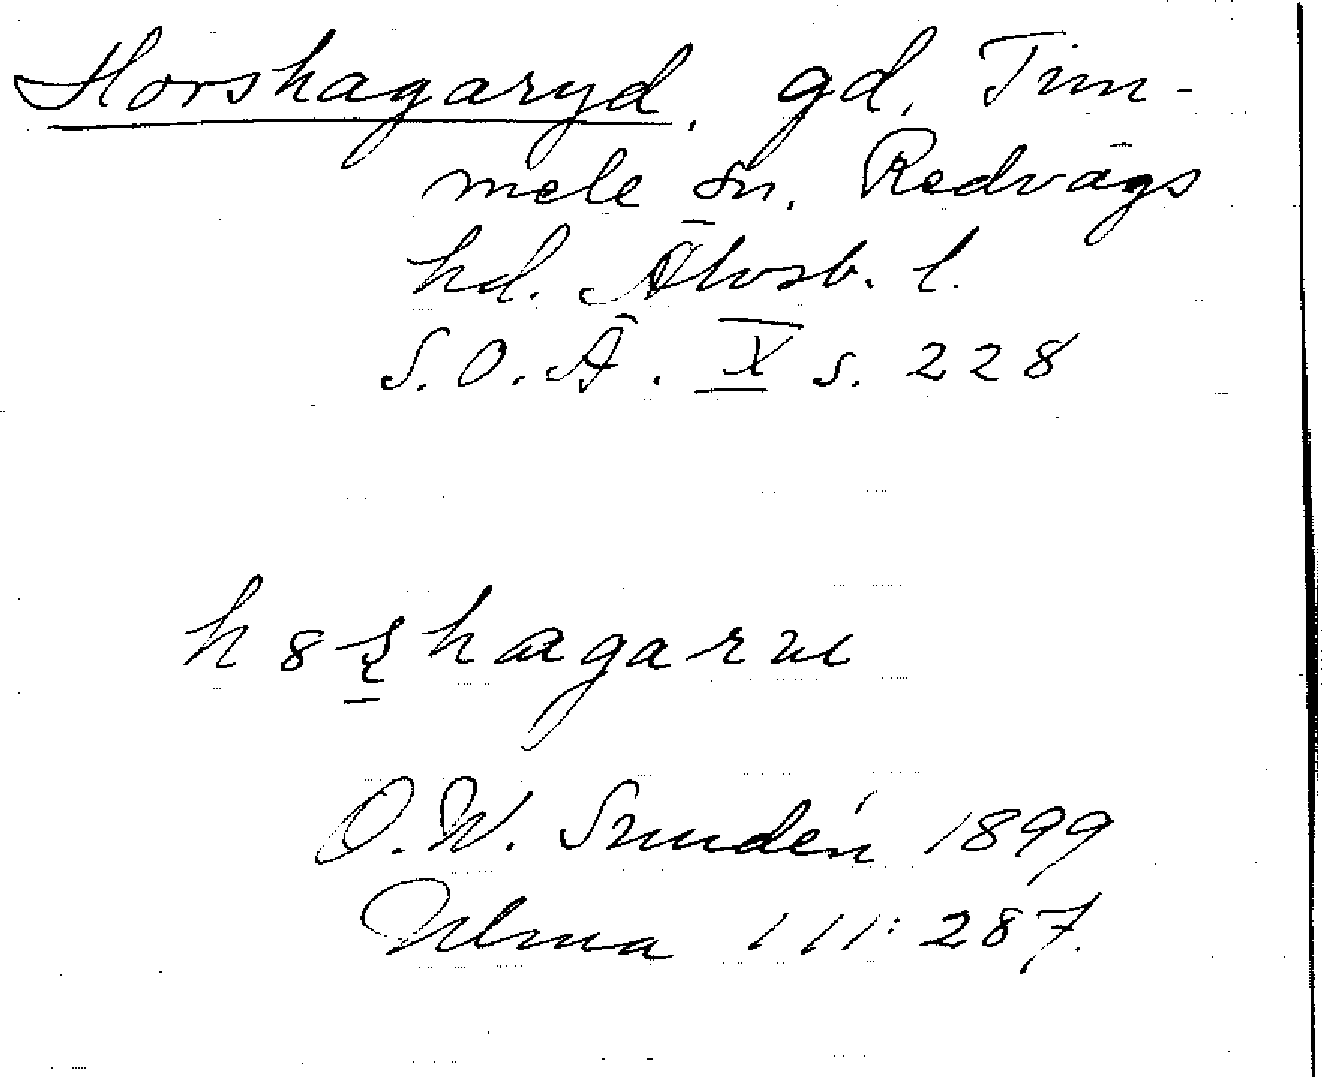 Horshagaryd, gd, Tim-
mele sn. Redvägs
hd. Älvsb. l.
S.O.Ä. X s. 228
O.W. Sundén 1899
Ulma 111:287.